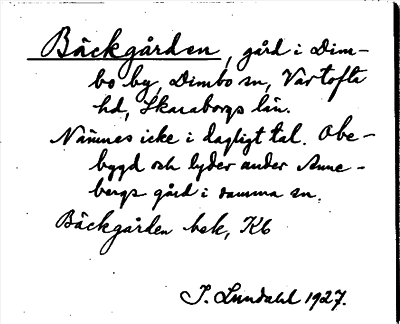 Bäckgården, gård i Dim-
bo by, Dimbo sn, Vartofta
hd, Skaraborgs län.
Nämnes icke i dagligt tal. Obe-
byggd och lyder under Anne-
bergs gård i samma sn.
Bäckgården bek, Kb
I. Lundahl 1927.